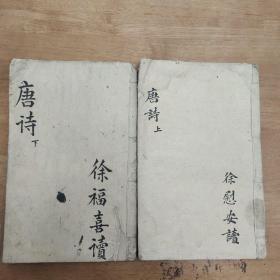 唐詩
上
徐慰安讀
唐诗
下
徐福喜讀